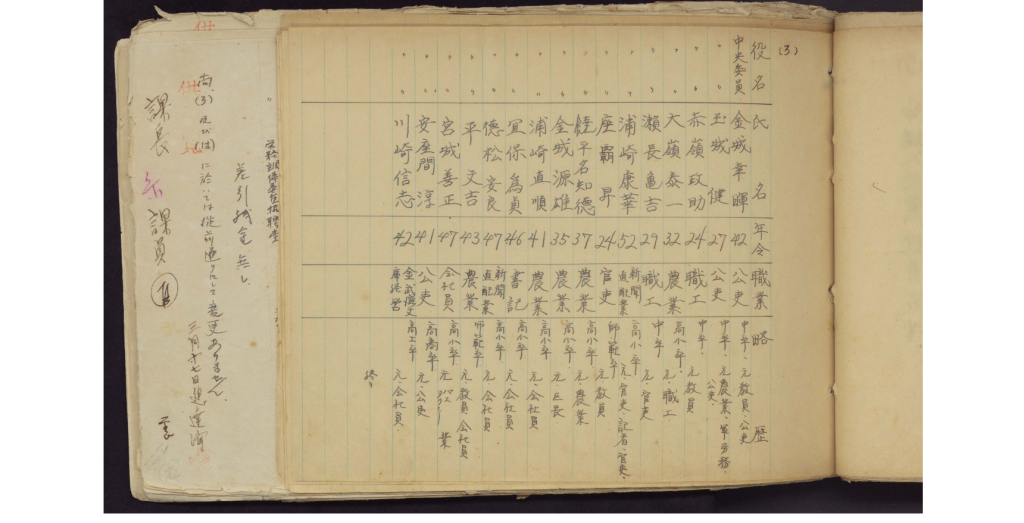 (3)
役名 氏名 年令 職業 略歴
中央委員 金城幸暉 42 公吏 中卒、元教員、公吏
〃 玉城健 27 公吏 中卒、元農業、軍労務、公吏、
〃 赤嶺政助 24 職工 中卒、元教員
〃 大嶺泰一 32 農業 高小卒、元、職工
〃 瀬長亀吉 29 職工 中卒 元、官吏
〃 浦崎康華 52 新聞通配業 高小卒 元、官吏、記者、官吏、
〃 座覇昇 24 官吏 師範卒 元教員
〃 饒平名知德 37 農業 高小卒 元、農業
〃 金城源雄 35 農業 高小卒 元区長
〃 浦崎直順 41 農業 高小卒 元、会社員
〃 宜保為貞 46 書記 高小卒 元、会社員
〃 德松安良 47 新聞直配業 高小卒 元、会社員
〃 平文吉 43 農業 師範卒 元、教員 会社員
〃 宮城善正 47 会社員 高小卒 元 業
〃 安座間淳 41 公吏 高商卒 元、公吏
〃 川崎信志 42 高工卒 元、会社員
終り
差引残金無し
尚(3)及び(は)に於いては従前通りにして変更ありません。
三月十七日
課長 課員